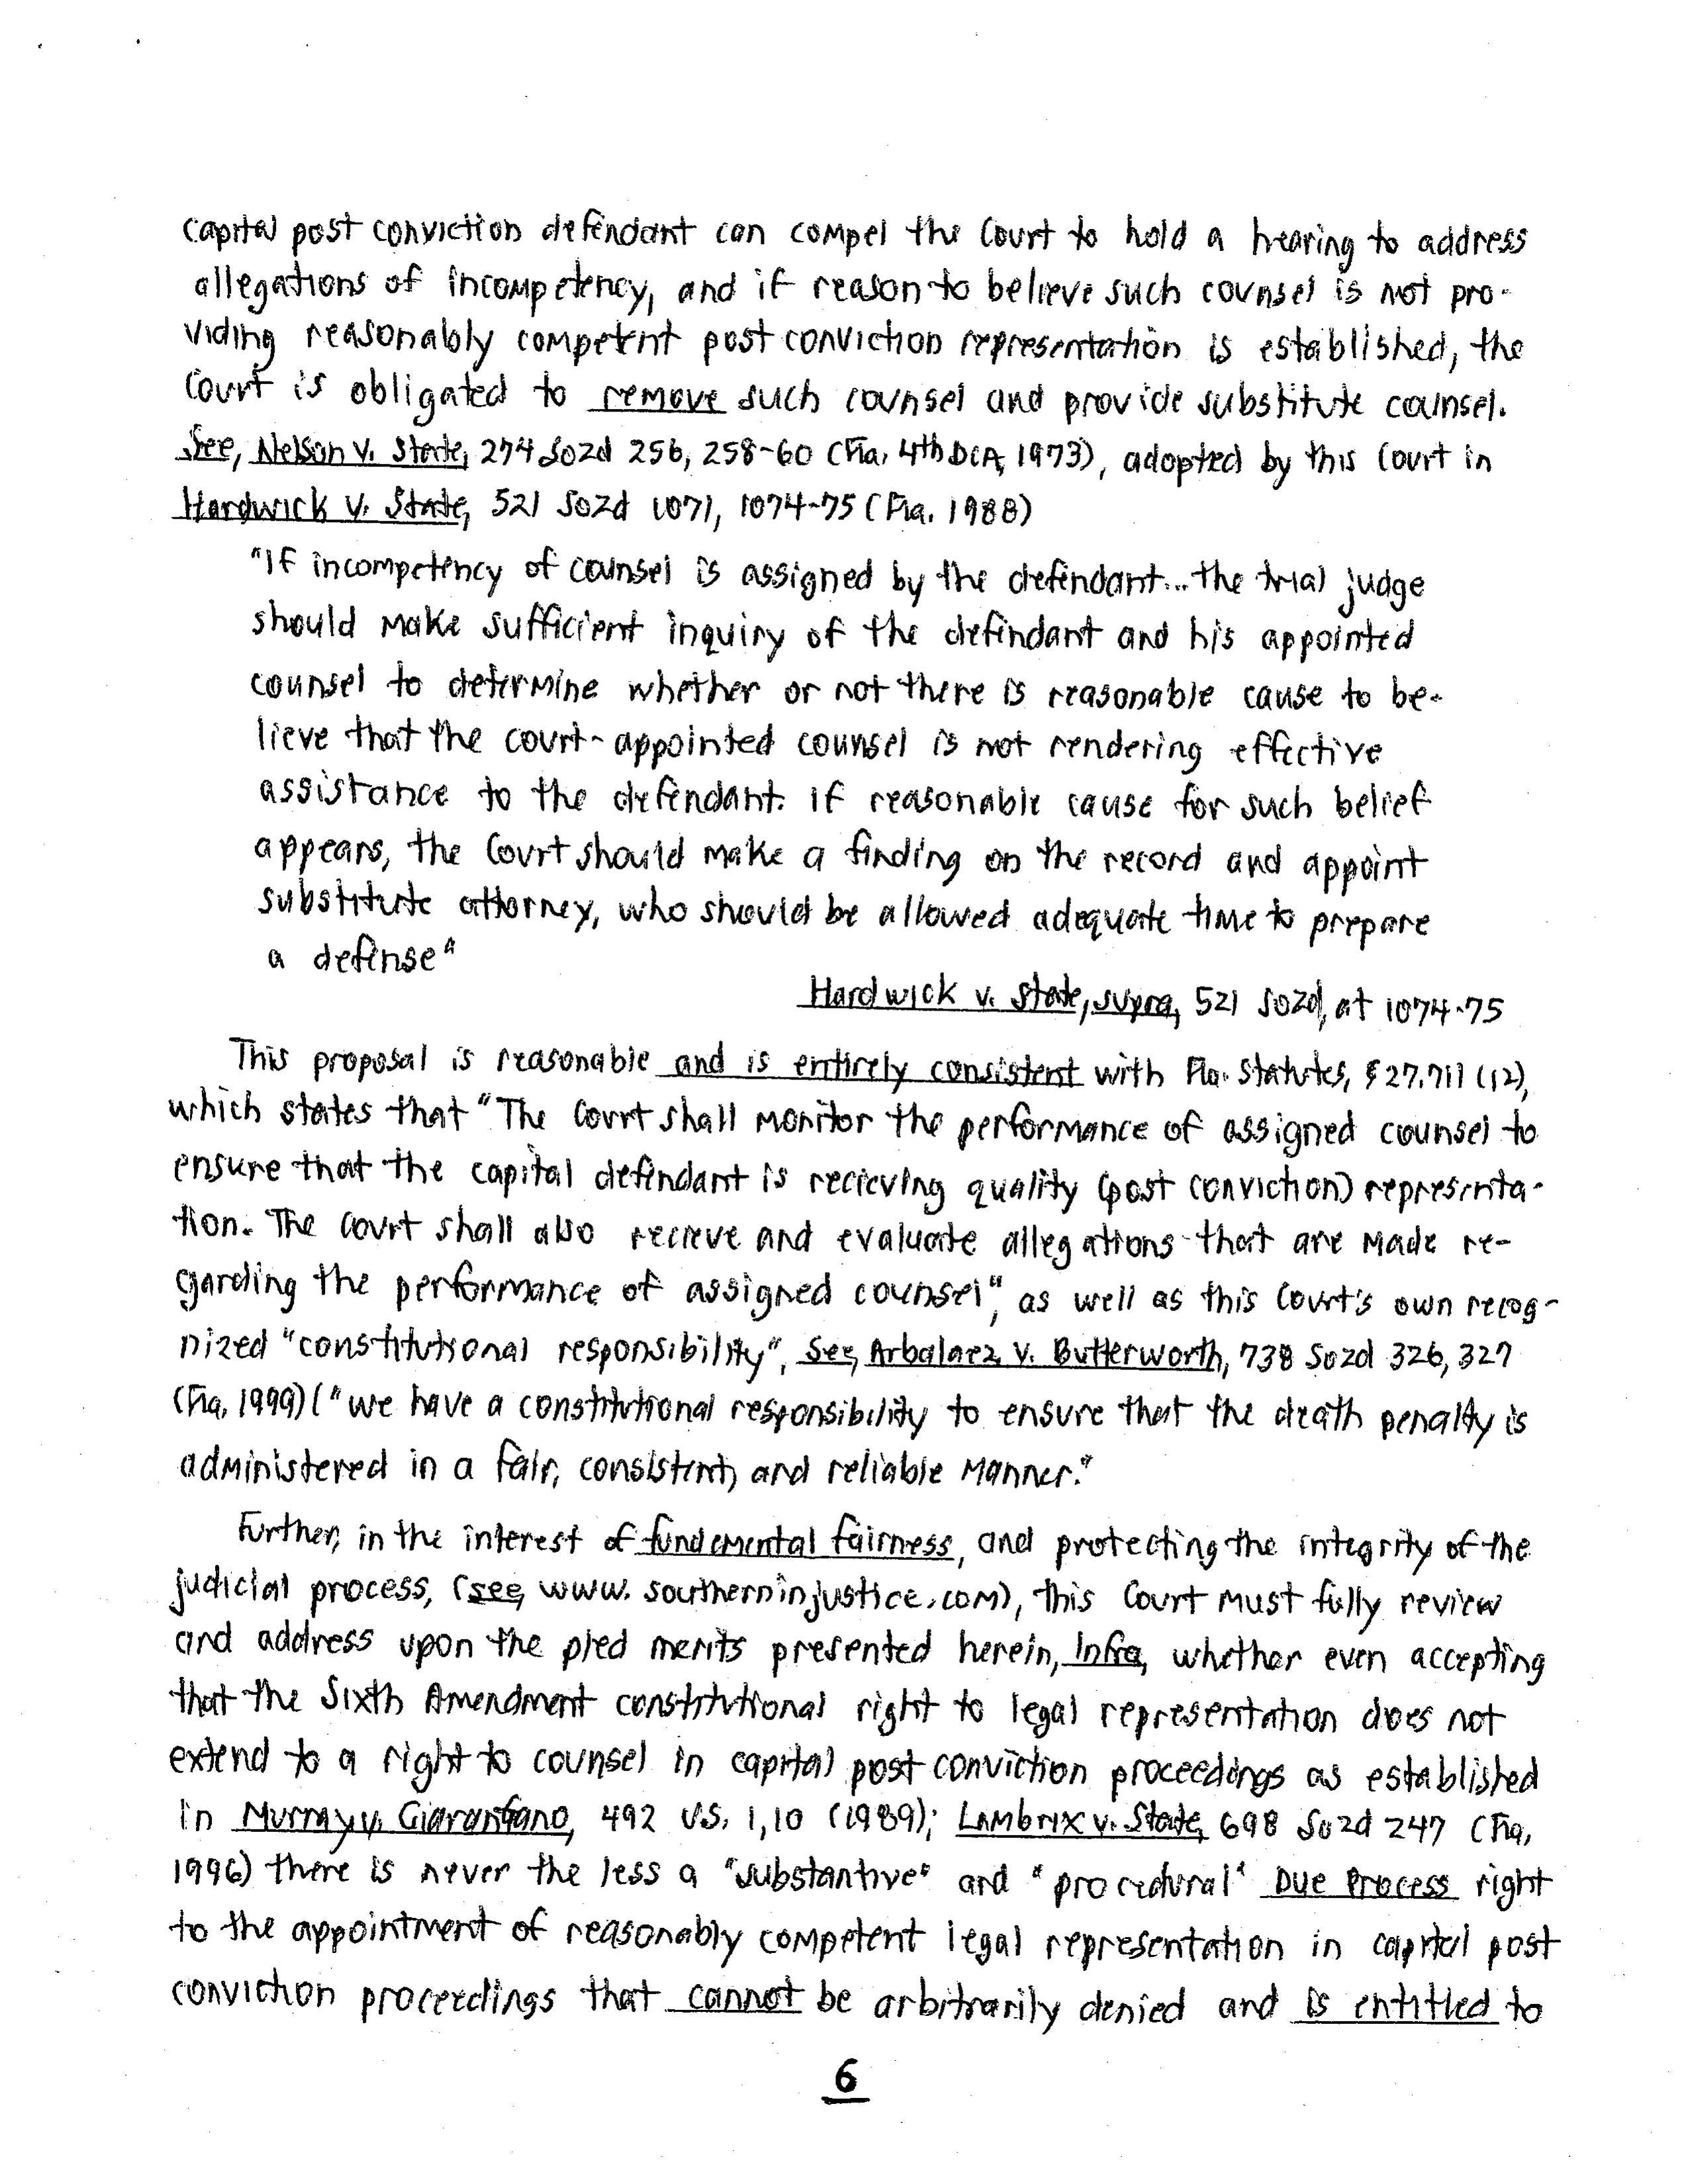 capital post conviction defendant can compel the Court to hold a hearing to address
allegations of incompetency, and if reason to believe such counsel is not pro-
viding reasonably competent post conviction representation is established, the
Court is obligated to remove such counsel and provide substitute counsel.
See, Nelson v. State, 274 So2d 256, 258-60 (Fla. 4th DCA, 1973), adopted by this Court in
Hardwick v. State, 521 So2d 1071, 1074-75 (Fla. 1988)
"If incompetency of counsel is assigned by the defendant... the trial judge
should make sufficient inquiry of the defendant and his appointed
counsel to determine whether or not there is reasonable cause to be-
lieve that the court-appointed counsel is not rendering effective
assistance to the defendant. if reasonable cause for such belief
appears, the Court should make a finding on the record and appoint
substitute attorney, who should be allowed adequate time to prepare
a defense"
Hardwick v. State, supra, 521 So2d, at 1074-75
This proposal is reasonable and is entirely consistent with Fla. Statutes, § 27.711 (12),
which states that "The Court shall monitor the performance of assigned counsel to
ensure that the capital defendant is recieving quality (post conviction) representa-
tion. The Court shall also recieve and evaluate allegations that are made re-
garding the performance of assigned counsel", as well as this Court's own recog-
nized "constitutional responsibility", See, Arbalaez v. Butterworth, 738 So2d 326, 327
(Fla, 1999) ("we have a constitutional responsibility to ensure that the death penalty is
administered in a fair, consistent, and reliable manner."
Further, in the interest of fundemental fairness, and protecting the integrity of the
judicial process, (see, www.southerninjustice.com), this Court must fully review
and address upon the pled merits presented herein, Infra, whether even accepting
that the Sixth Amendment constitutional right to legal representation does not
extend to a right to counsel in capital post conviction proceedings as established
in Murray v. Giarantano, 492 US. 1, 10 (1989); Lambrix v. State, 698 So2d 247 (Fla,
1996) there is never the less a "substantive" and "procedural" Due Process right
to the appointment of reasonably competent legal representation in capital post
conviction proceedings that cannot be arbitrarily denied and is entitled to
6